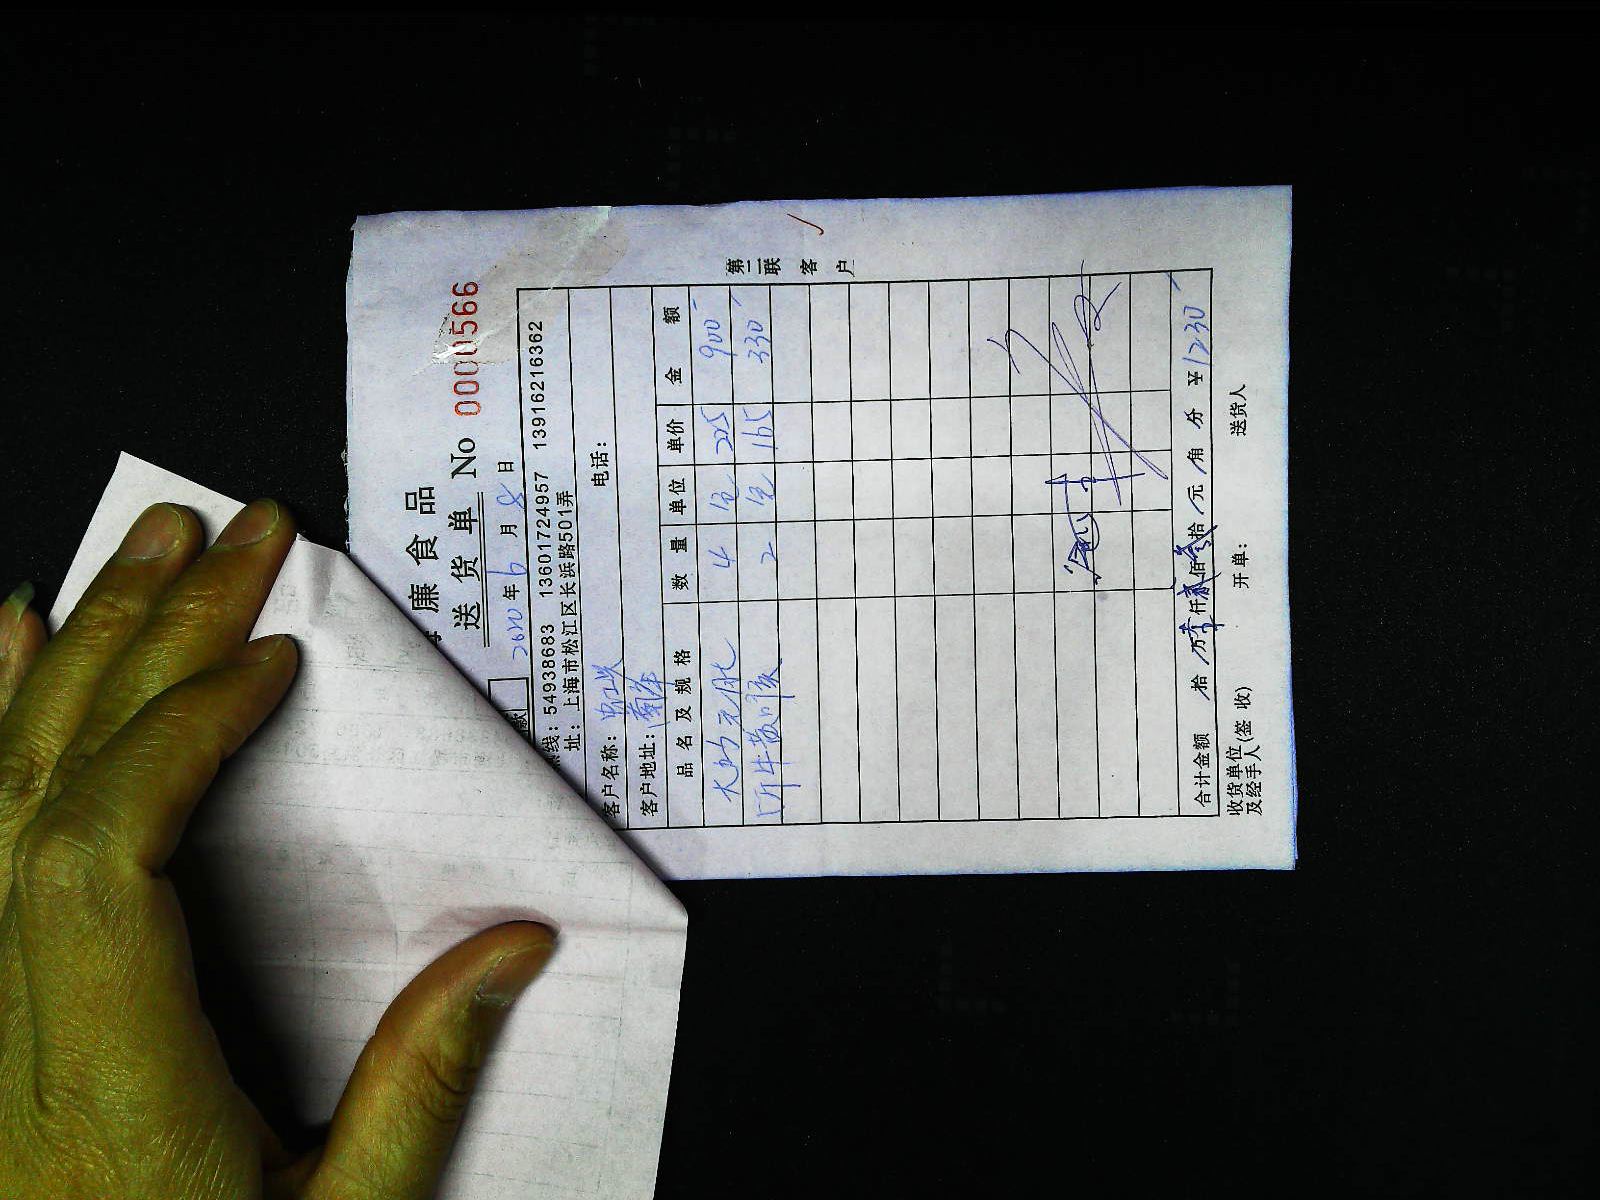 廉食品
送货单 No 0000566
2020年6月8日
线：54938683 13601724957 13916216362
址：上海市松江区长浜路501弄
客户名称： 电话：
客户地址：
品名及规格 数量 单位 单价 金额
4 包 225 900
2 包 165 330
第二联 客户
合计金额 拾万壹仟贰佰叁拾元角分 ¥1230
收货单位及经手人(签收) 开单： 送货人